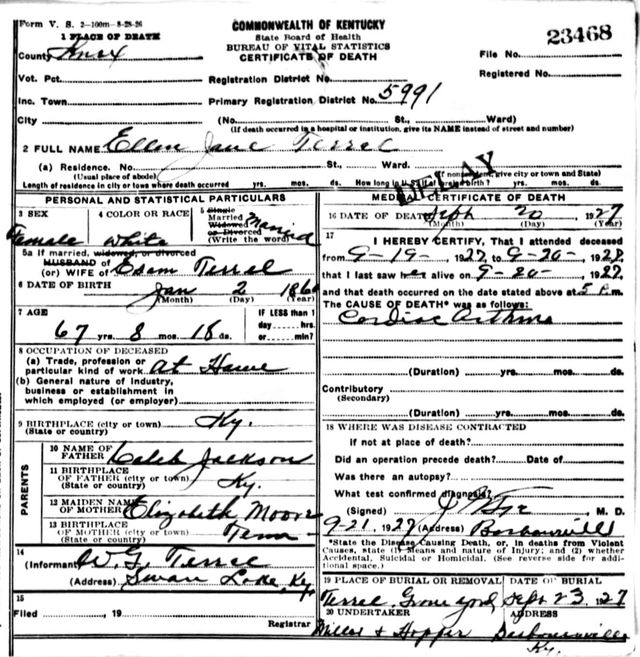 Form V. S. 2-100m-8-28-26
COMMONWEALTH OF KENTUCKY
State Board of Health
BUREAU OF VITAL STATISTICS
CERTIFICATE OF DEATH
23468
1 PLACE OF DEATH
County Knox
File No.
Vot. Pct.
Registration District No.
Registered No.
Inc. Town
Primary Registration District No. 5991
City
(No. St., Ward)
(If death occurred in a hospital or institution, give its NAME instead of street and number)
2 FULL NAME Ellen Jane Terrel
(a) Residence. No. St., Ward.
(Usual place of abode) (If nonresident, give city or town and State)
Length of residence in city or town where death occurred yrs. mos. ds. How long in U.S. if of foreign birth? yrs. mos. ds.
DELAY
PERSONAL AND STATISTICAL PARTICULARS
3 SEX
Female
4 COLOR OR RACE
White
5 Single
Married
Widowed
or Divorced
(Write the word) Married
5a If married, widowed, or divorced
HUSBAND of
(or) WIFE of Terrel
6 DATE OF BIRTH
Jan 2 186
(Month) (Day) (Year)
7 AGE
67 yrs. 8 mos. 18 ds.
IF LESS than 1
day hrs.
or min?
8 OCCUPATION OF DECEASED
(a) Trade, profession or
particular kind of work At Home
(b) General nature of Industry,
business or establishment in
which employed (or employer)
9 BIRTHPLACE (city or town) Ky.
(State or country)
PARENTS
10 NAME OF
FATHER Caleb Jackson
11 BIRTHPLACE
OF FATHER (city or town) Ky.
(State or country)
12 MAIDEN NAME
OF MOTHER Elizabeth Moore
13 BIRTHPLACE
OF MOTHER (city or town) Tenn
(State or country)
14
(Informant W.G. Terrel
(Address) Swan Lake, Ky
15
Filed , 19
Registrar
MEDICAL CERTIFICATE OF DEATH
16 DATE OF DEATH Sept 20 1927
(Month) (Day) (Year)
17
I HEREBY CERTIFY, That I attended deceased
from 9-19-, 1927, to 9-20-, 1927,
that I last saw her alive on 9-20-, 1927,
and that death occurred on the date stated above at 5 P.m.
The CAUSE OF DEATH* was as follows:
Cardiac Asthma
(Duration) yrs. mos. ds.
Contributory
(Secondary)
(Duration) yrs. mos. ds.
18 WHERE WAS DISEASE CONTRACTED
If not at place of death?
Did an operation precede death? Date of
Was there an autopsy?
What test confirmed diagnosis?
(Signed) M. D.
9-21, 1927 (Address) Barbourville
*State the Disease Causing Death, or, in deaths from Violent
Causes, state (1) Means and nature of Injury; and (2) whether
Accidental, Suicidal or Homicidal. (See reverse side for addi-
tional space.)
19 PLACE OF BURIAL OR REMOVAL
Terrel Grave yard
DATE OF BURIAL
Sept 23 1927
20 UNDERTAKER
Miller & Hopper
ADDRESS
Barbourville
Ky.